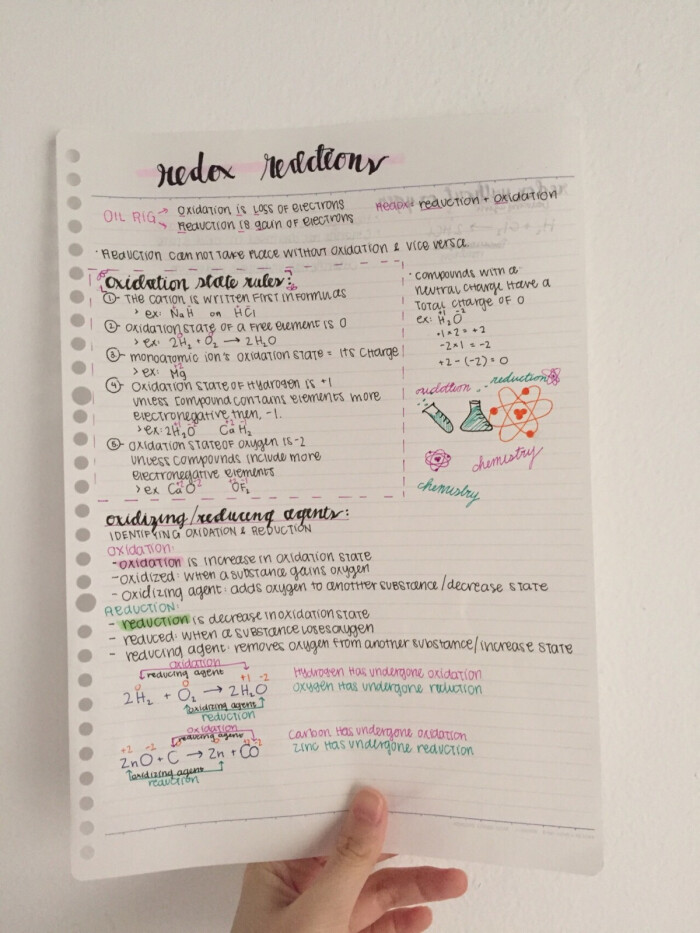 redox reactions
OIL RIG → Oxidation is Loss of electrons
→ Reduction is gain of electrons
Redox = reduction + oxidation
· Reduction can not take place without oxidation & vice versa
Oxidation state rules:
① The cation is written first in formulas
> ex: NaH or HCl
② oxidation state of a free element is 0
> ex: 2H₂ + O₂ → 2H₂O
③ monoatomic ion's oxidation state = its charge
> ex: Mg +2
④ oxidation state of Hydrogen is +1
unless compound contains elements more
electronegative then, -1.
> ex: 2H₂O CaH₂
⑤ oxidation state of oxygen is -2
unless compounds include more
electronegative elements
> ex CaO OF₂
· compounds with a
neutral charge have a
total charge of 0
ex: H₂O +1 -2
+1 x 2 = +2
-2 x 1 = -2
+2 - (-2) = 0
reduction
chemistry
chemistry
oxidizing/reducing agents:
IDENTIFYING OXIDATION & REDUCTION
Oxidation:
- oxidation is increase in oxidation state
- oxidized: when a substance gains oxygen
- oxidizing agent: adds oxygen to another substance/decrease state
Reduction:
- reduction is decrease in oxidation state
- reduced: when a substance loses oxygen
- reducing agent: removes oxygen from another substance/increase state
oxidation
reducing agent
0 0 +1 -2
2H₂ + O₂ → 2H₂O
oxidizing agent
reduction
Hydrogen has undergone oxidation
oxygen has undergone reduction
oxidation
reducing agent
+2 -2 0 0 +2 -2
ZnO + C → Zn + CO
oxidizing agent
reduction
Carbon has undergone oxidation
zinc has undergone reduction